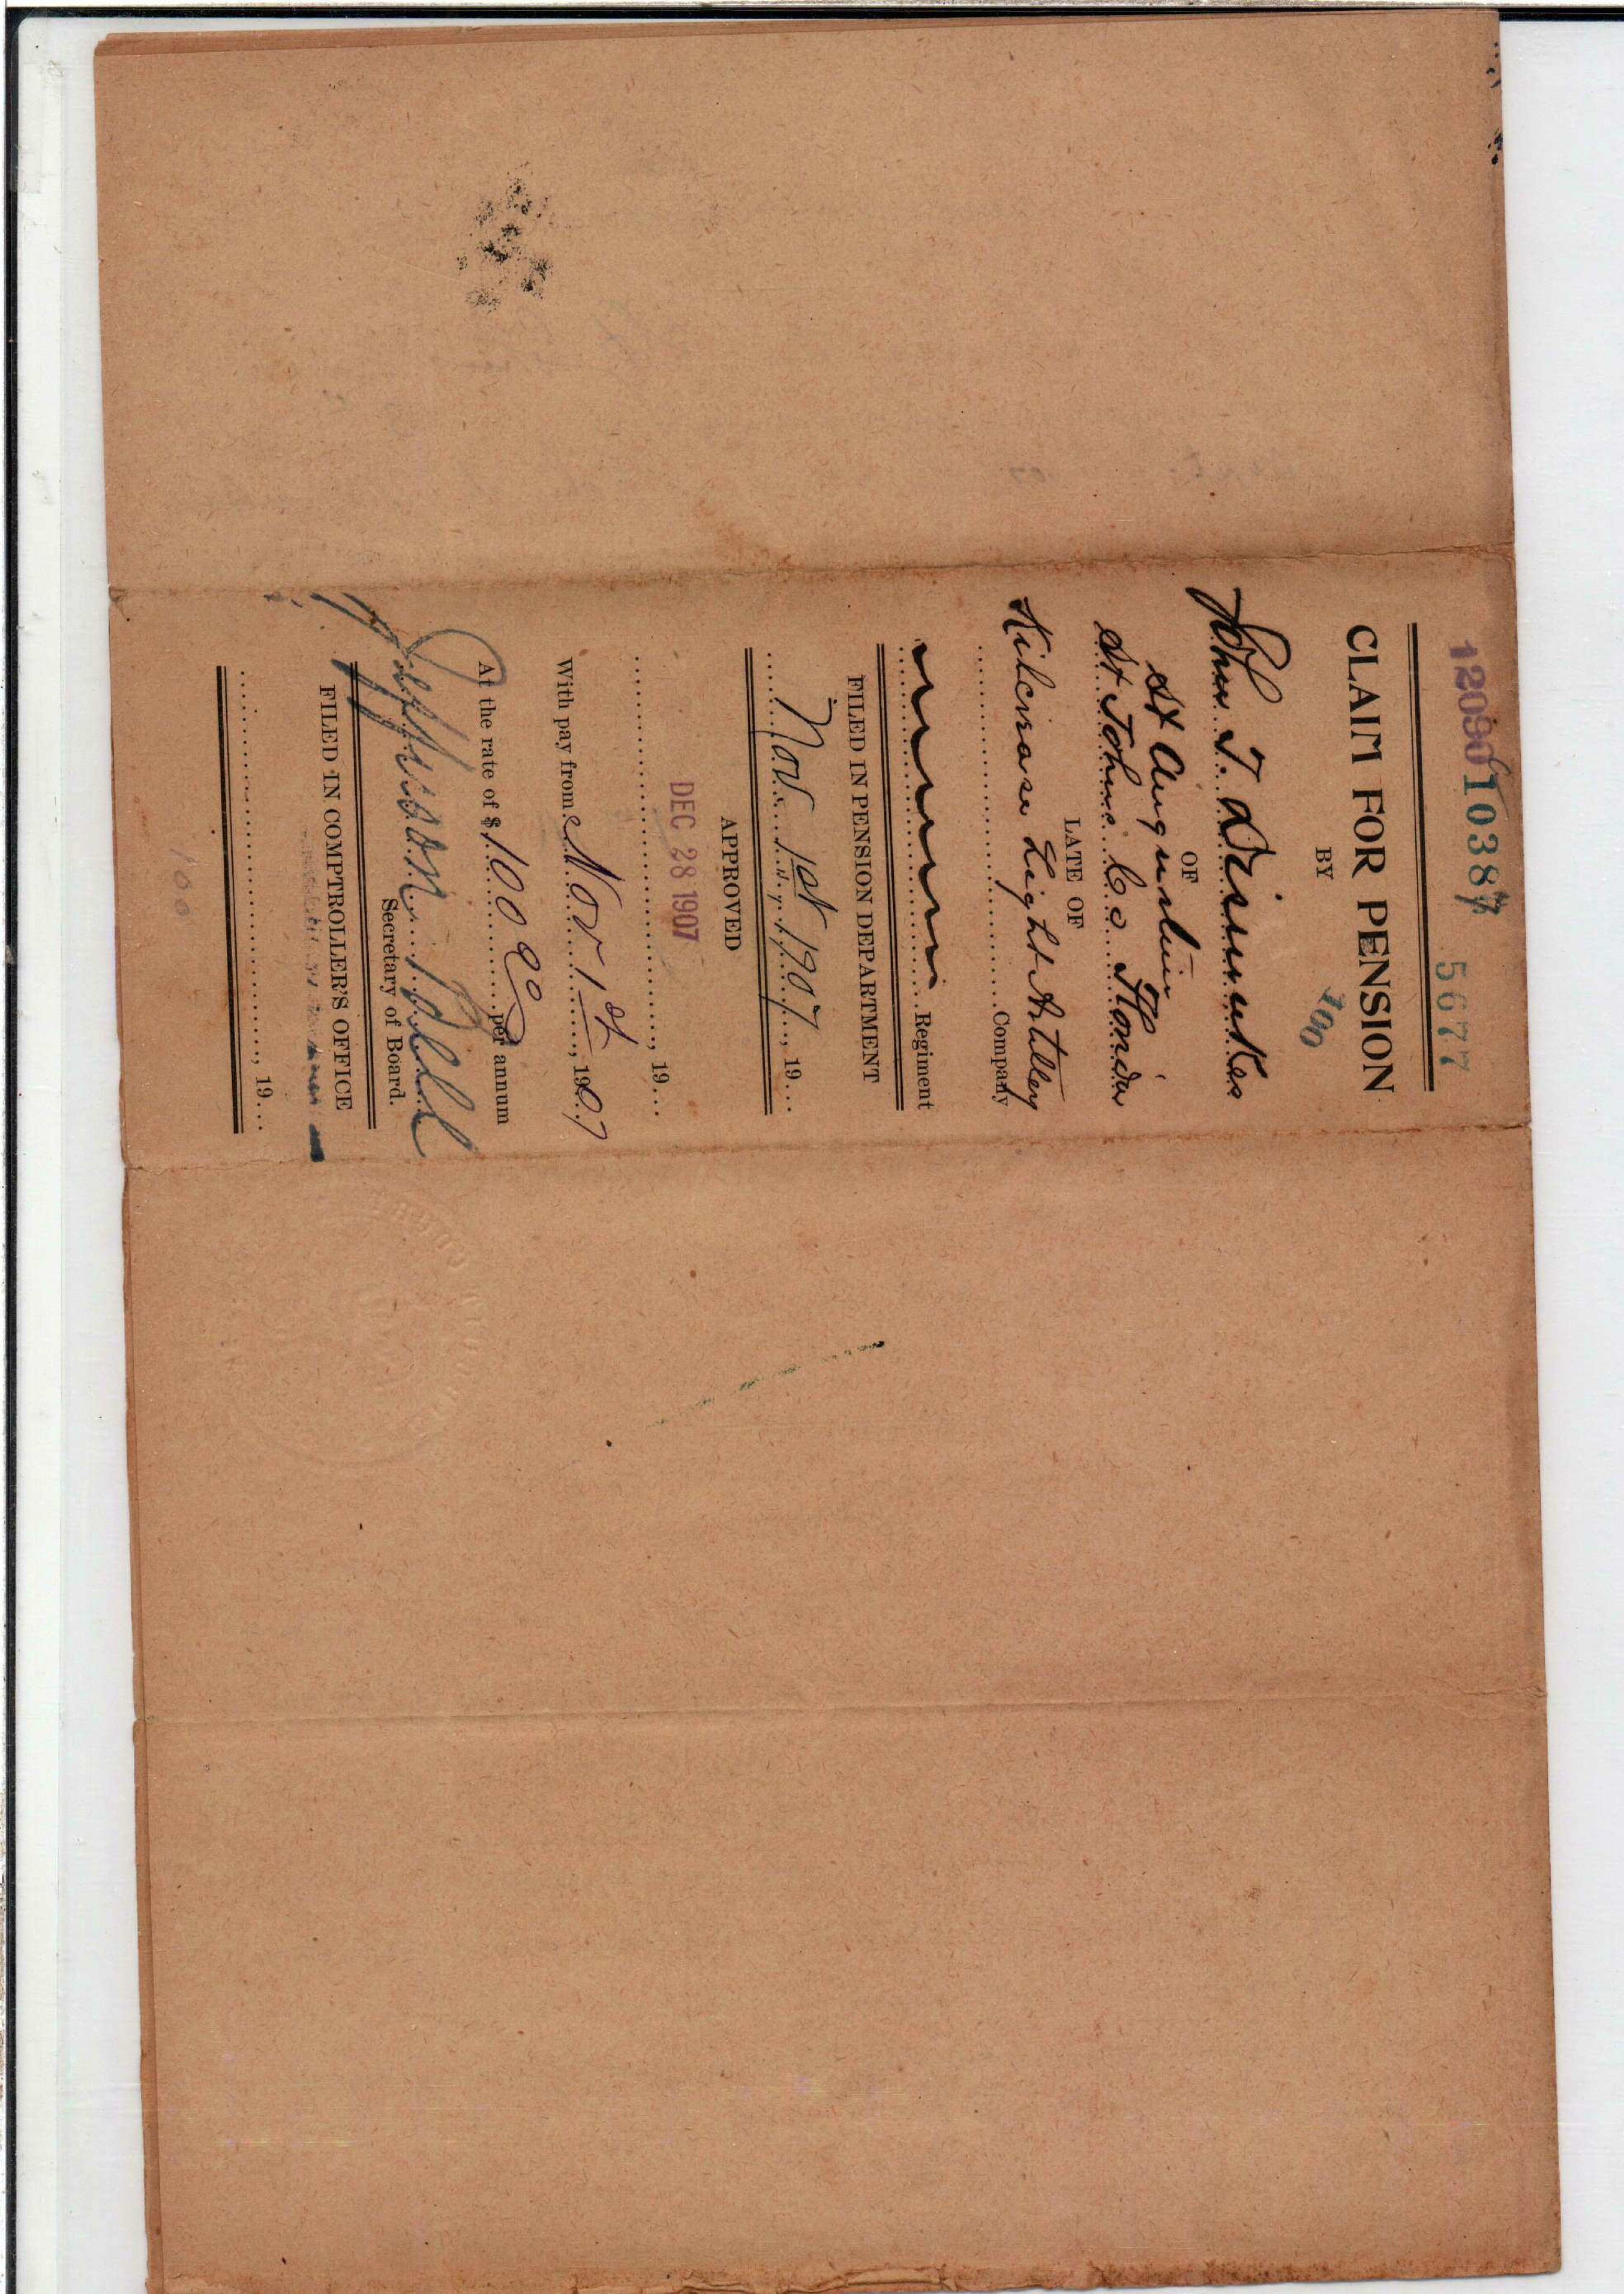 12090 10387 5677
CLAIM FOR PENSION
100
BY
John T. Dismukes
OF
St Augustine
St Johns Co Florida
LATE OF
Kilcrease Light Artillery
Company
Regiment
FILED IN PENSION DEPARTMENT
Nov. 1st 1907, 19...
APPROVED
DEC 28 1907
, 19...
With pay from Nov 1st, 1907
At the rate of $100.00 per annum
Jefferson Bell
Secretary of Board.
FILED IN COMPTROLLER'S OFFICE
, 19...
100